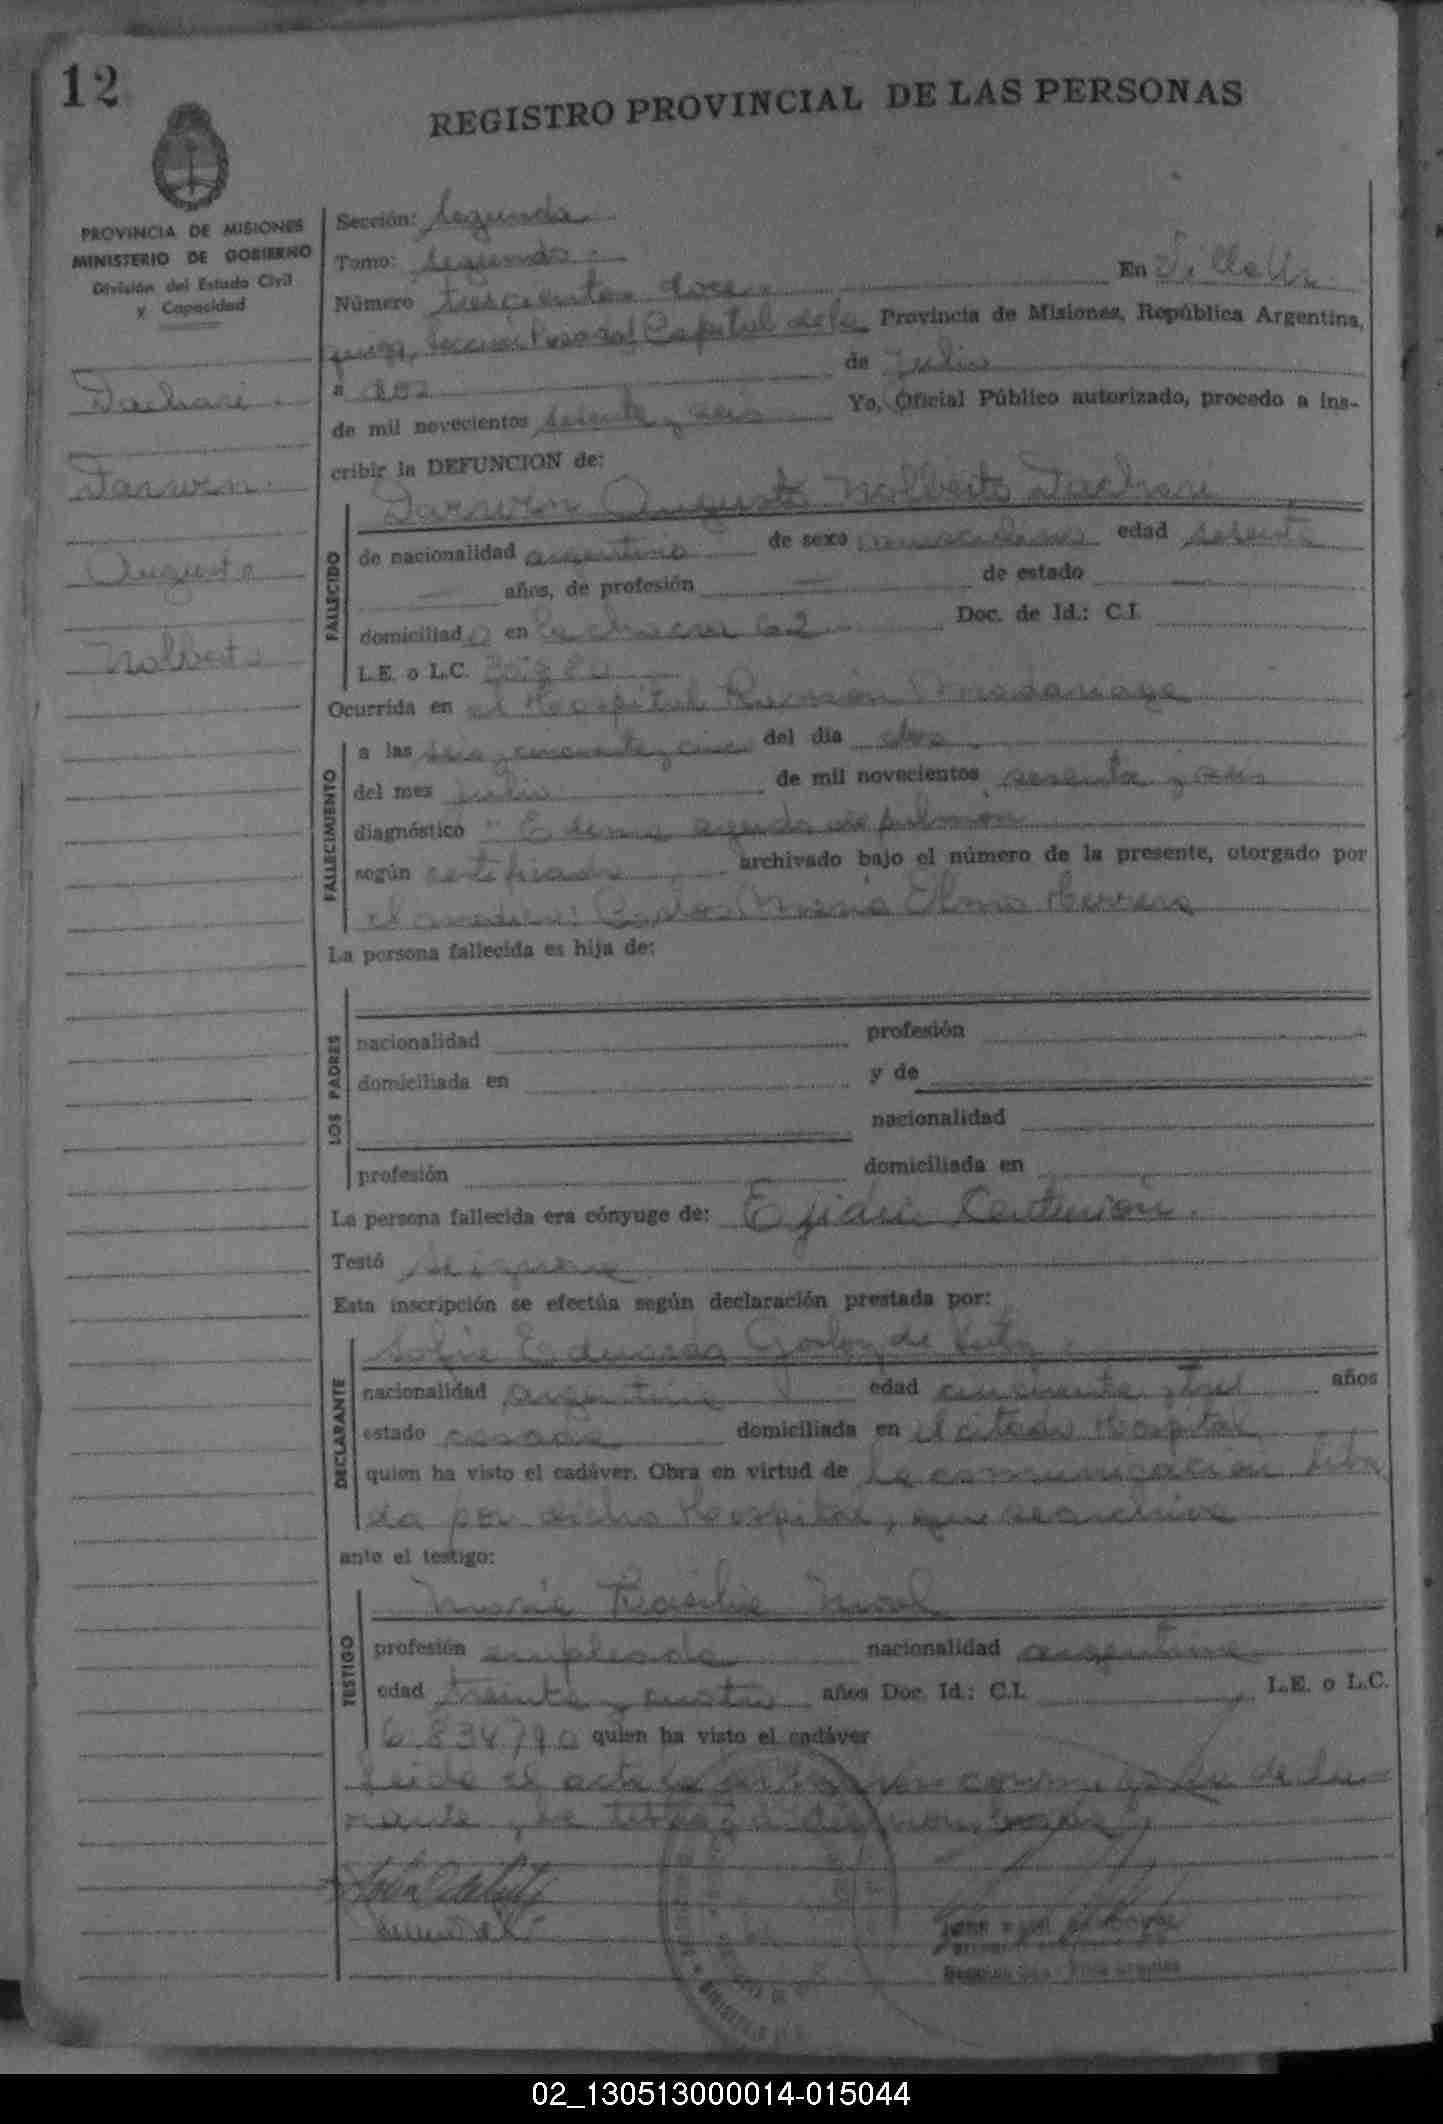 12
REGISTRO PROVINCIAL DE LAS PERSONAS
PROVINCIA DE MISIONES
MINISTERIO DE GOBIERNO
División del Estado Civil
y Capacidad
Darwin
Augusto
Nolberto
Sección: Segunda
Tomo: Segundo
Número trescientos doce En Villa Ur
quiza, Sección Posadas Capital de la Provincia de Misiones, República Argentina,
a dos de Julio
de mil novecientos sesenta y seis Yo, Oficial Público autorizado, procedo a ins-
cribir la DEFUNCION de:
Darwin Augusto Nolberto
FALLECIDO
de nacionalidad argentino de sexo masculino edad sesenta
años, de profesión — de estado —
domiciliado en la chacra 62 Doc. de Id.: C.I.
L.E. o L.C.
Ocurrida en el Hospital Ramón Madariaga
FALLECIMIENTO
a las seis y cincuenta y cinco del dia dos
del mes Julio de mil novecientos sesenta y seis
diagnóstico "Edema agudo de pulmón
según certificado archivado bajo el número de la presente, otorgado por
el medico: Carlos María Herrera
La persona fallecida es hija de:
LOS PADRES
nacionalidad profesión
domiciliada en y de
nacionalidad
profesión domiciliada en
La persona fallecida era cónyuge de:
Testó se ignora
Esta inscripción se efectúa según declaración prestada por:
DECLARANTE
Eduarda Godoy de
nacionalidad argentina edad cincuenta y tres años
estado casada domiciliada en el citado Hospital
quien ha visto el cadáver. Obra en virtud de la comunicación libra
da por dicho Hospital, que se archiva
ante el testigo:
TESTIGO
María
profesión empleada nacionalidad argentina
edad treinta y cuatro años Doc. Id.: C.I. L.E. o L.C.
6.834.790 quien ha visto el cadáver
Leida el acta la firmaron conmigo la decla-
rante y la testigo
02_130513000014-015044